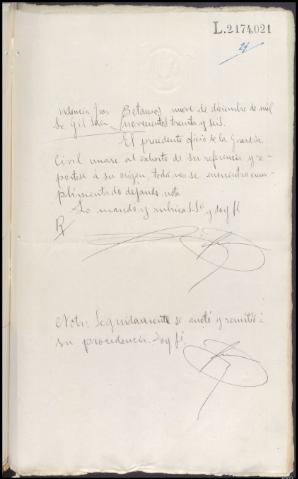 L.2174.021
24
Betanzos nueve de diciembre de mil
de Gil Sáez novecientos treinta y seis.
El precedente oficio de la Guardia
Civil unase al exhorto de su referencia y re-
portese á su origen, toda vez se encuentra cum-
plimentado dejando nota
Lo mandó y rubrica S.Sª y doy fé
R/
Nota: Seguidamente se anotó y remitió á
su procedencia. Doy fé